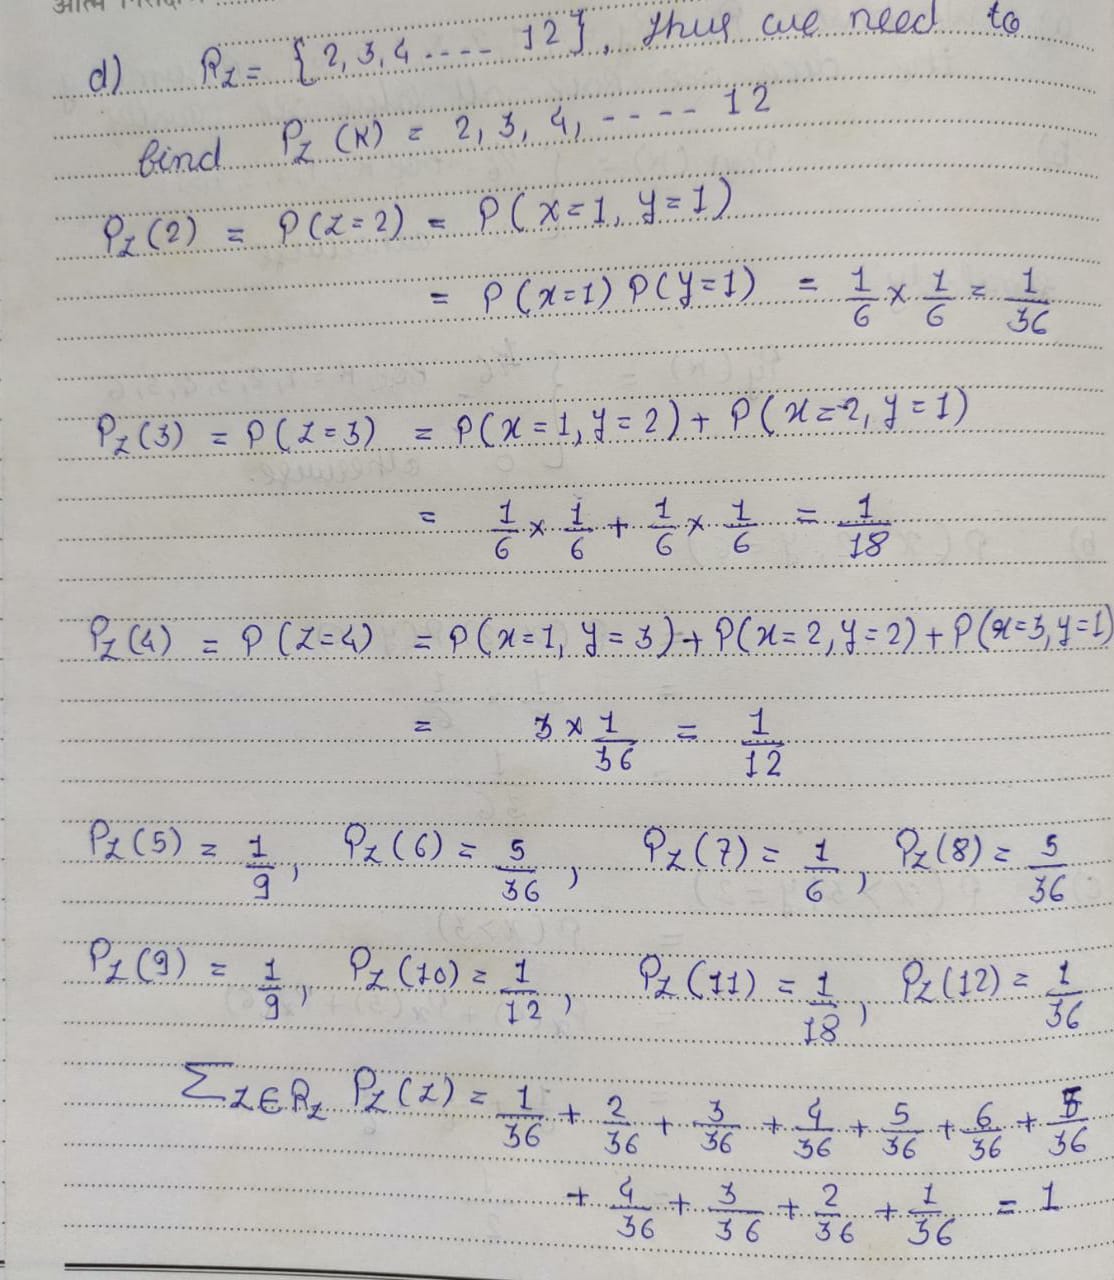 d) R_Z = {2, 3, 4 ---- 12}, thus we need to
find P_Z (K) = 2, 3, 4, ---- 12
P_Z (2) = P(Z=2) = P(x=1, y=1)
= P(x=1) P(y=1) = 1/6 × 1/6 = 1/36
P_Z (3) = P(Z=3) = P(x=1, y=2) + P(x=2, y=1)
= 1/6 × 1/6 + 1/6 × 1/6 = 1/18
P_Z (4) = P(Z=4) = P(x=1, y=3) + P(x=2, y=2) + P(x=3, y=1)
= 3 × 1/36 = 1/12
P_Z (5) = 1/9, P_Z (6) = 5/36, P_Z (7) = 1/6, P_Z (8) = 5/36
P_Z (9) = 1/9, P_Z (10) = 1/12, P_Z (11) = 1/18, P_Z (12) = 1/36
Σ_Z∈R_Z P_Z (Z) = 1/36 + 2/36 + 3/36 + 4/36 + 5/36 + 6/36 + 5/36
+ 4/36 + 3/36 + 2/36 + 1/36 = 1